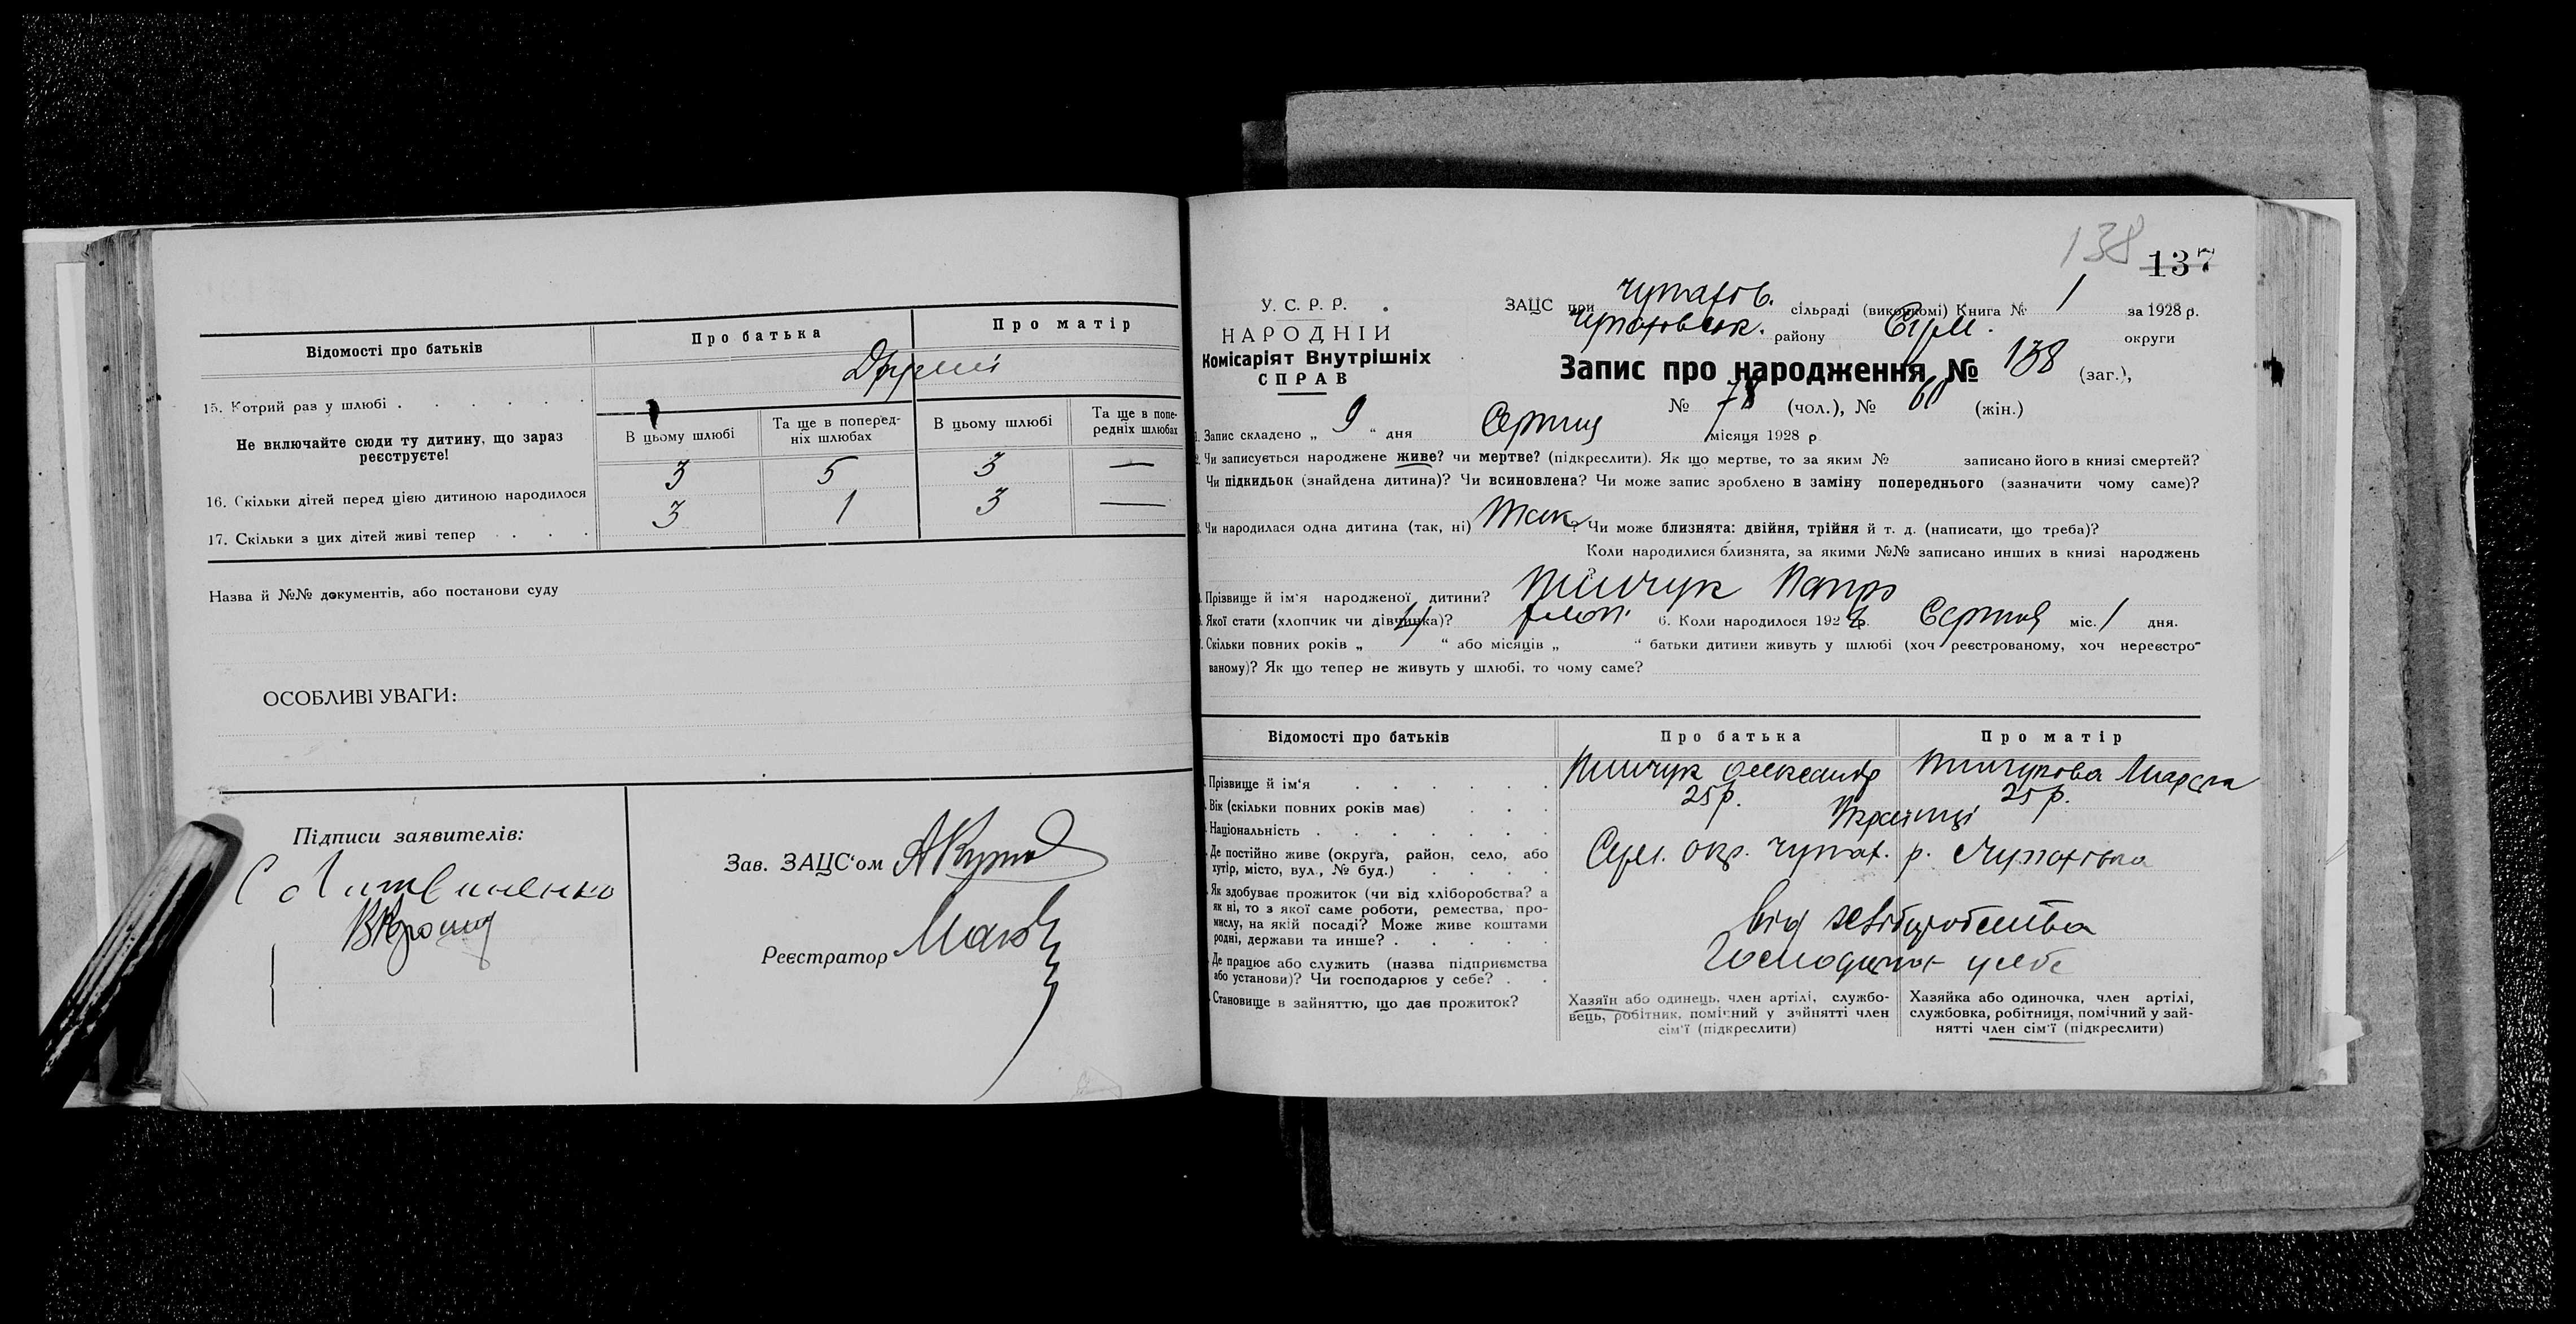 Відомості про батьків
Про батька
Про матір
15. Котрий раз у шлюбі
Другий
Не включайте сюди ту дитину, що зараз реєструєте!
В цьому шлюбі
Та ще в поперед-
ніх шлюбах
В цьому шлюбі
Та ще в попе-
редніх шлюбах
16. Скільки дітей перед цією дитиною народилося
3 5 3 —
17. Скільки з цих дітей живі тепер
3 1 3 —
Назва й №№ документів, або постанови суду
ОСОБЛИВІ УВАГИ:
Підписи заявителів:
С Литвиненко
Зав. ЗАЦС'ом
Реєстратор
138
137
У. С. Р. Р.
НАРОДНІЙ
Комісаріят Внутрішніх
СПРАВ
ЗАЦС при сільраді (виконкомі) Книга № 1 за 1928 р.
району Сум. округи
Запис про народження № 138 (заг.),
№ 78 (чол.), № 60 (жін.)
1. Запис складено „ 9 “ дня Серпня місяця 1928 р
2. Чи записується народжене живе? чи мертве? (підкреслити). Як що мертве, то за яким № записано його в книзі смертей?
Чи підкидьок (знайдена дитина)? Чи всиновлена? Чи може запис зроблено в заміну попереднього (зазначити чому саме)?
3. Чи народилася одна дитина (так, ні) Так ? Чи може близнята: двійня, трійня й т. д. (написати, що треба)?
Коли народилися близнята, за якими №№ записано инших в книзі народжень
Прізвище й ім'я народженої дитини? Тимчук Петро
Якої стати (хлопчик чи дівчинка)? хлоп. 6. Коли народилося 1928 р. Серпня міс. 1 дня.
Скільки повних років „ 4 “ або місяців „ “ батьки дитини живуть у шлюбі (хоч реєстрованому, хоч нереєстро-
ваному)? Як що тепер не живуть у шлюбі, то чому саме?
Відомості про батьків
Про батька
Про матір
Прізвище й ім'я
Тимчук Олександр
Тимчукова Марфа
Вік (скільки повних років має)
25 р.
25 р.
Національність
Українці
Де постійно живе (округа, район, село, або
хутір, місто, вул., № буд.)
Сум. окр.
Як здобуває прожиток (чи від хліборобства? а
як ні, то з якої саме роботи, ремества, про-
мислу, на якій посаді? Може живе коштами
родні, держави та инше?
від хліборобства
Де працює або служить (назва підприємства
або установи)? Чи господарює у себе?
Господарют у себе
Становище в зайняттю, що дає прожиток?
Хазяїн або одинець, член артілі, службо-
вець, робітник, помічний у зайнятті член
сім'ї (підкреслити)
Хазяйка або одиночка, член артілі,
службовка, робітниця, помічний у зай-
нятті член сім'ї (підкреслити)